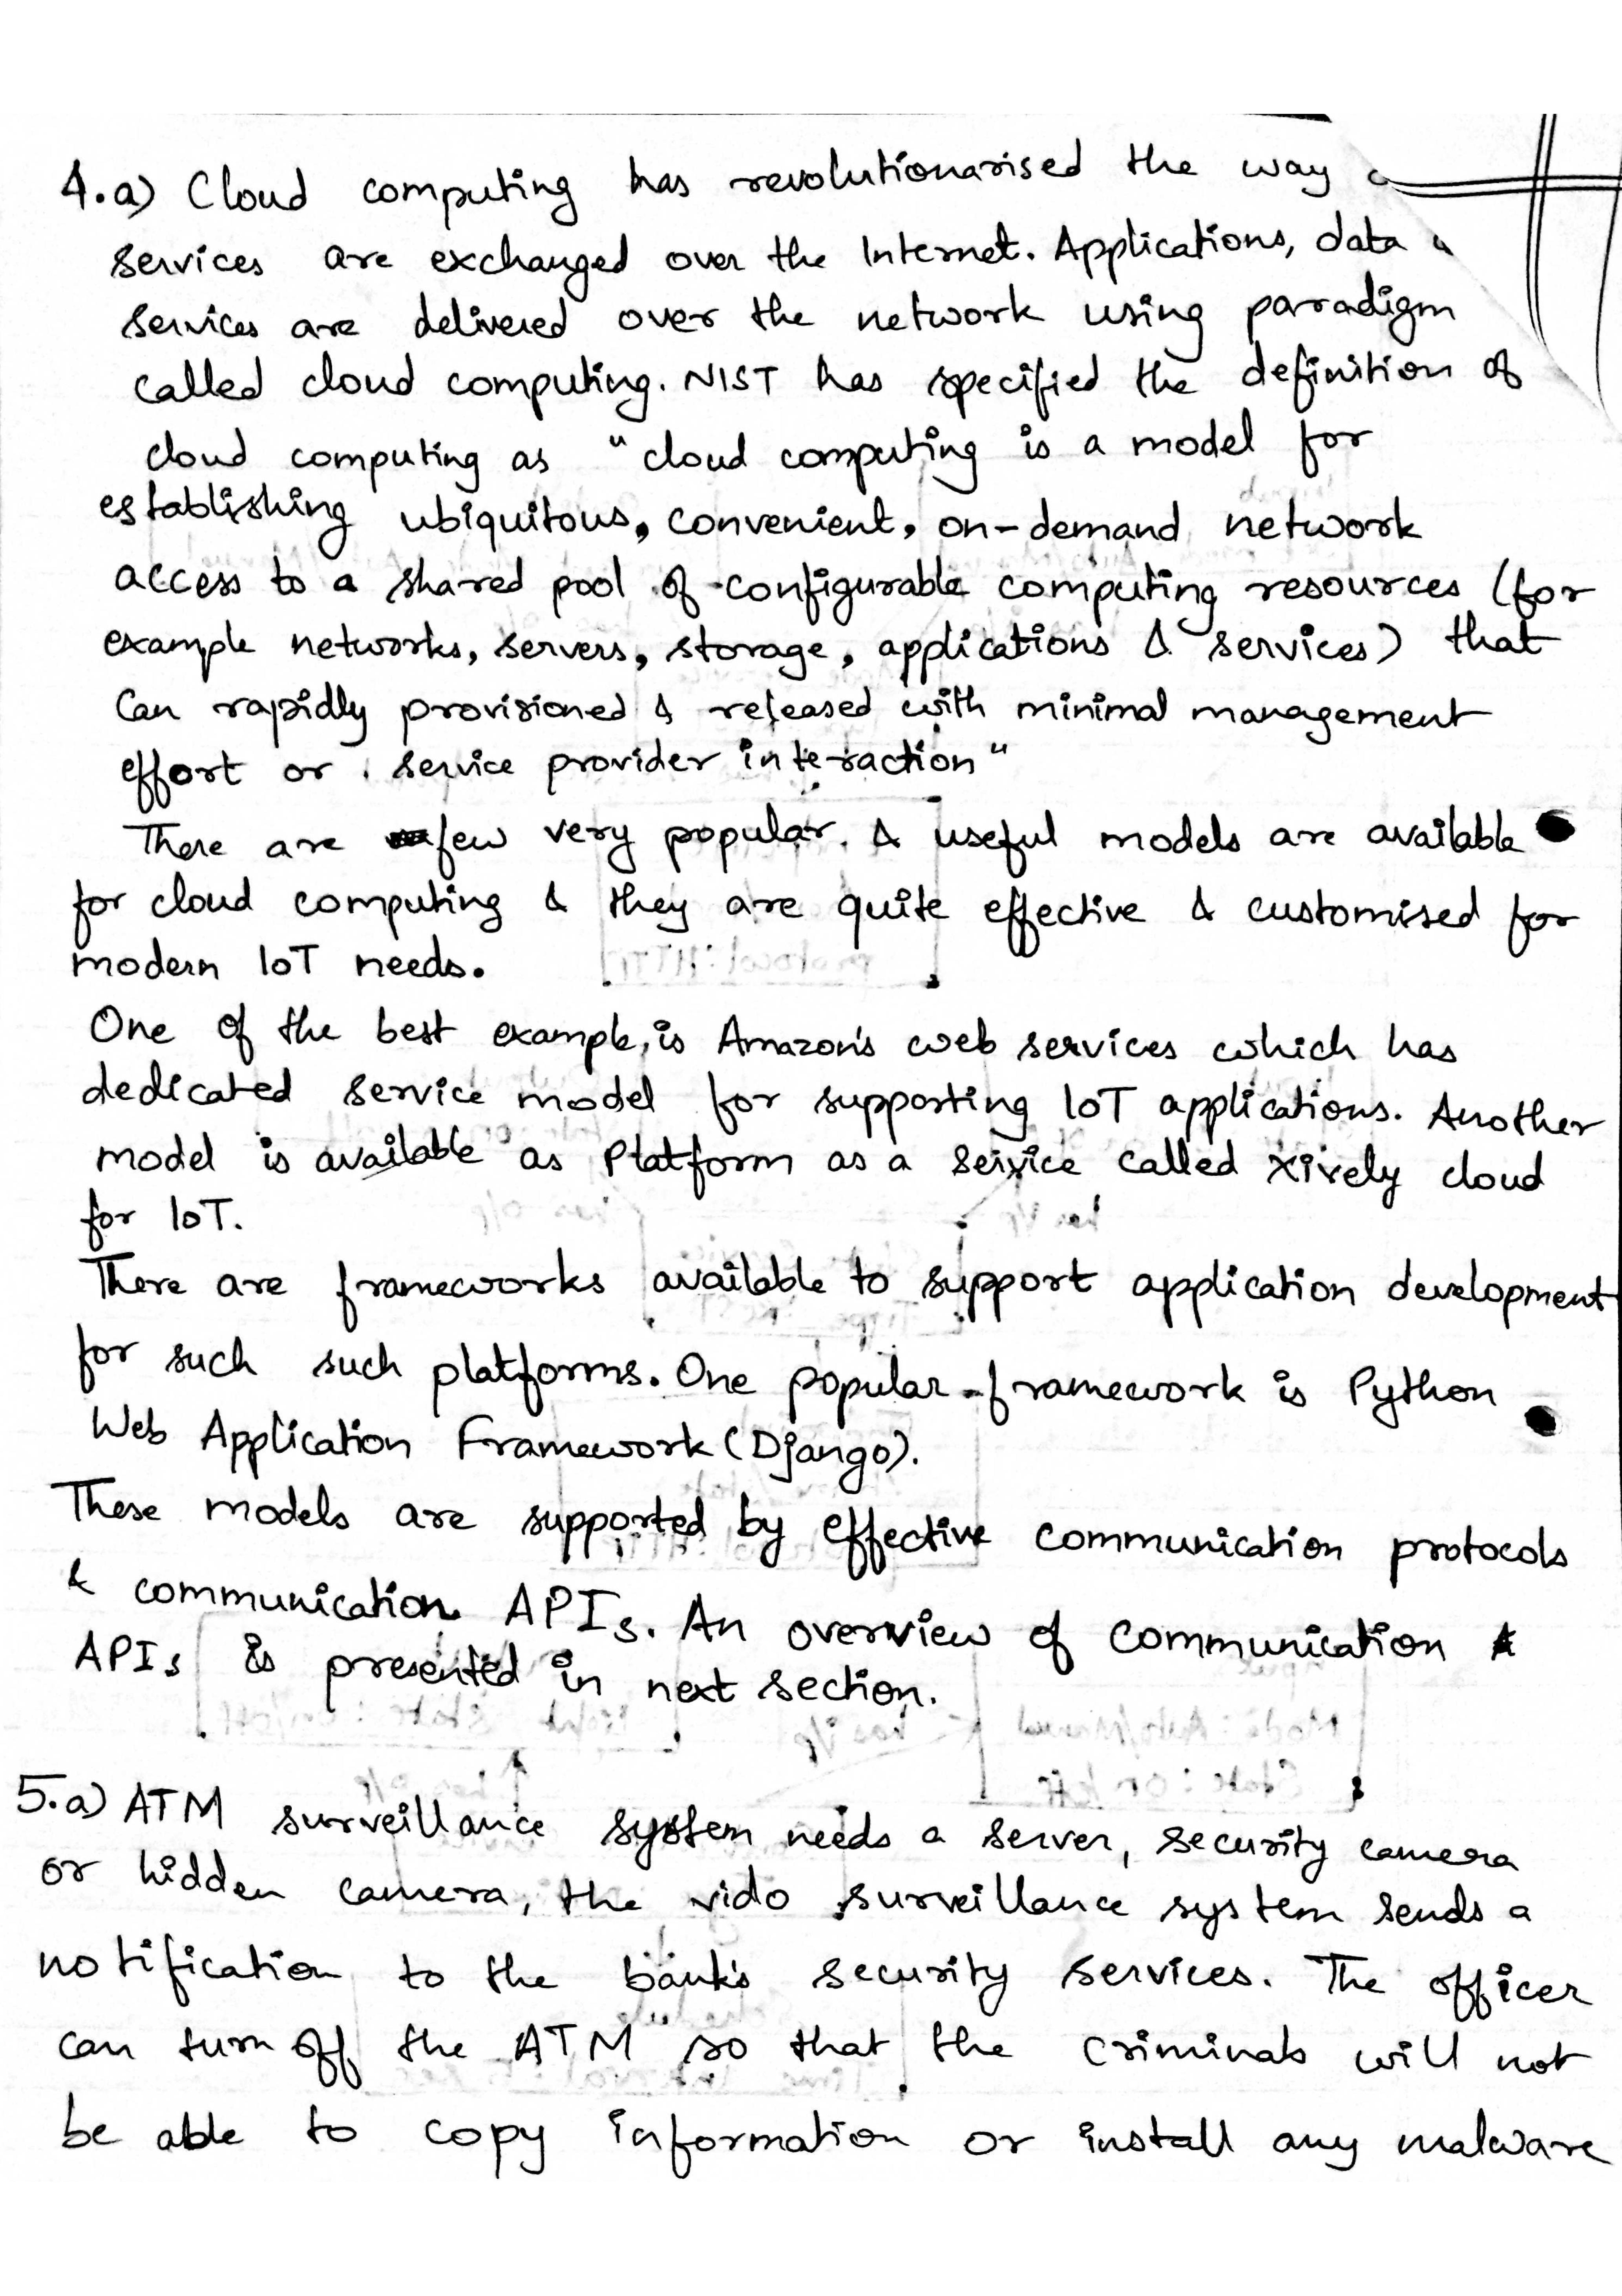 4.a) Cloud computing has revolutionarised the way
services are exchanged over the Internet. Applications, data
services are delivered over the network using paradigm
called cloud computing. NIST has specified the definition of
cloud computing as "cloud computing is a model for
establishing ubiquitous, convenient, on-demand network
access to a shared pool of configurable computing resources (for
example networks, servers, storage, applications & services) that
Can rapidly provisioned & released with minimal management
effort or service provider interaction"
There are few very popular & useful models are available
for cloud computing & they are quite effective & customised for
modern IoT needs.
One of the best example, is Amazon's web services which has
dedicated service model for supporting IoT applications. Another
model is available as Platform as a service called xively cloud
for IoT.
There are frameworks available to support application development
for such such platforms. One popular framework is Python
Web Application Framework (Django).
These models are supported by effective communication protocols
& communication APIs. An overview of communication &
APIs is presented in next section.
5.a) ATM surveillance system needs a server, security camera
or hidden camera, the vido surveillance system sends a
notification to the bank's security services. The officer
can turn off the ATM so that the criminals will not
be able to copy information or install any malware